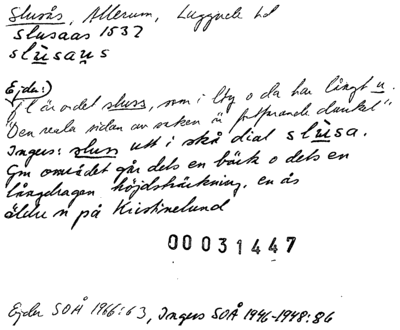 Slusås, Allerum, Luggude hd
slusaas 1532
slùsaus
Ejder:)
"Tl är ordet sluss, som i lty o da har långt u.
"Den reala sidan av saken är fortfarande dunkel"
Ingers: sluss utt i skå dial slùsa.
Gm området går dels en bäck o dels en
långdragen höjdsträckning, en ås
äldre n på Kristinelund
00031447
Ejder SOÅ 1966:63, Ingers SOÅ 1946-1948:86